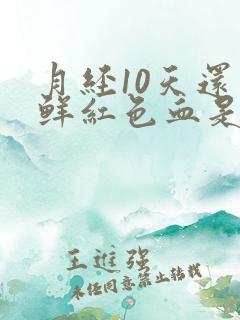 月经10天還
鲜红色血是
王進强
未经同意禁止转载